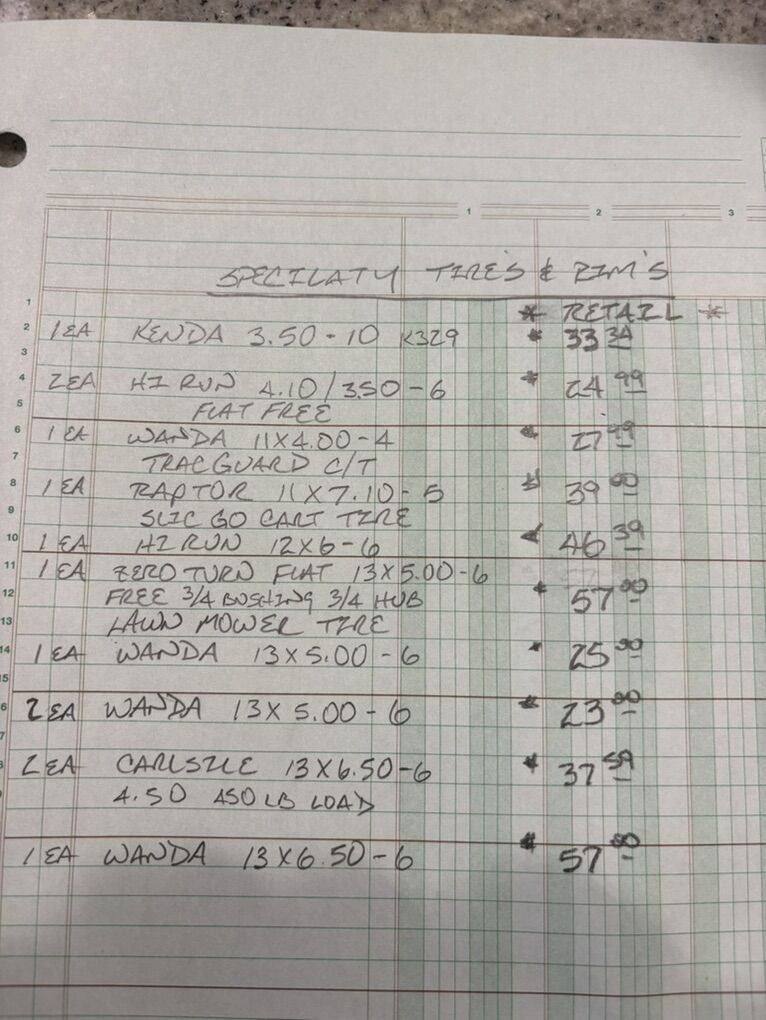 1 2 3
SPECILATY TIRE'S & RIM'S
1 * RETAIL *
2 1 EA KENDA 3.50 - 10 K329 * 33 34
3
4 2 EA HI RUN 4.10/3.50 - 6 * 24 99
5 FLAT FREE
6 1 EA WANDA 11 X 4.00 - 4 * 27 99
7 TRACGUARD C/T
8 1 EA RAPTOR 11 X 7.10 - 5 * 39 00
9 SLIC GO CART TIRE
10 1 EA HI RUN 12 X 6 - 6 * 46 39
11 1 EA ZERO TURN FLAT 13 X 5.00 - 6
12 FREE 3/4 BUSHING 3/4 HUB * 57 00
13 LAWN MOWER TIRE
14 1 EA WANDA 13 X 5.00 - 6 * 25 00
15
6 2 EA WANDA 13 X 5.00 - 6 * 23 00
2 EA CARLSILE 13 X 6.50 - 6 * 37 59
4.50 450 LB LOAD
1 EA WANDA 13 X 6.50 - 6 * 57 00